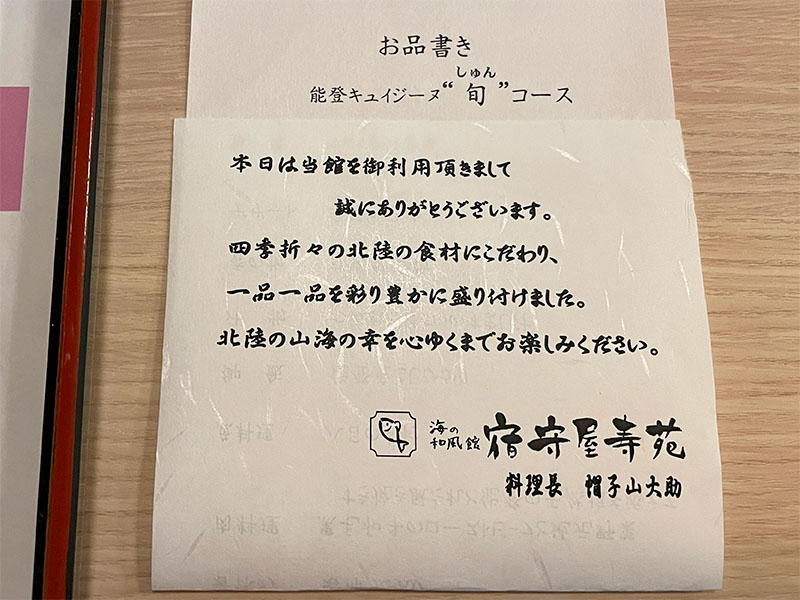 お品書き
しゅん
能登キュイジーヌ“旬”コース
本日は当館を御利用頂きまして
誠にありがとうございます。
四季折々の北陸の食材にこだわり、
一品一品を彩り豊かに盛り付けました。
北陸の山海の幸を心ゆくまでお楽しみください。
海の
和風館
宿守屋寿苑
料理長 帽子山大助